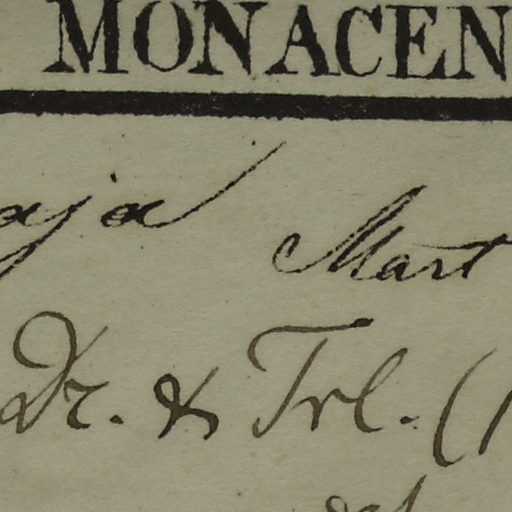 MONACEN
aja Mart
Dr. & Trl. (1